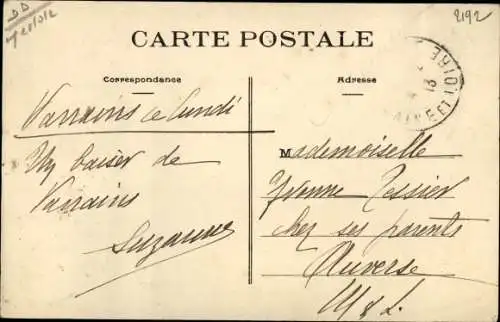 DD
2192
CARTE POSTALE
Correspondance
Adresse
Varrains ce lundi
Un baiser de
Varrains
Suzanne
Mademoiselle
Yvonne Tessier
chez ses parents
Auverse
M & L.
13
ET LOIRE